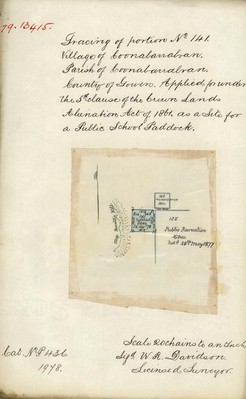 79.13415.
Tracing of portion No 141.
Village of Coonabarabran.
Parish of Coonabarabran.
County of Gowen. Applied for under
the 5th clause of the Crown Lands
Alienation Act of 1861, as a Site for
a Public School Paddock.
125
Public Recreation
28th May 1877
Scale 20 chains to an Inch
Cat. No P436
1978.
Sgd. W. R. Davidson.
Licensed Surveyor.